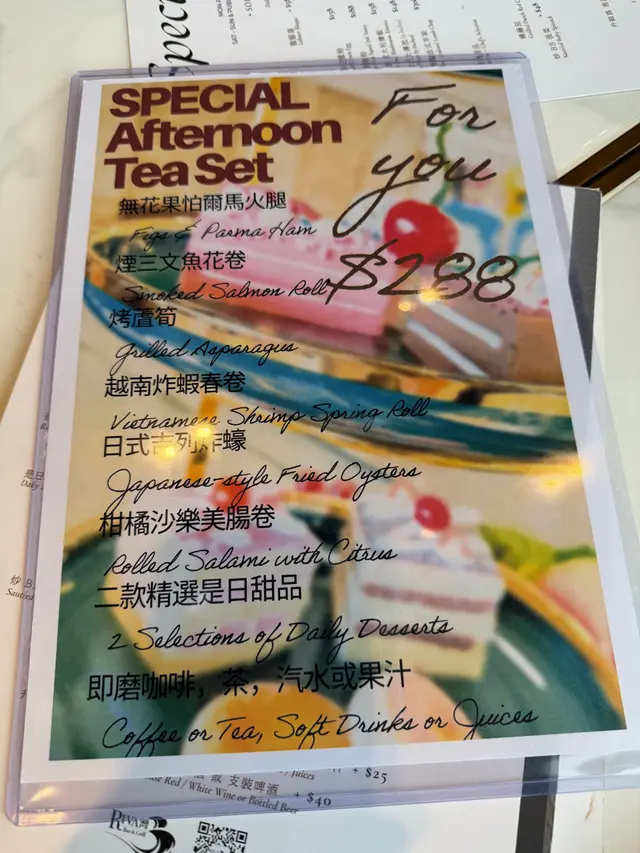 SPECIAL
Afternoon
Tea Set
For
you
$288
無花果怕爾馬火腿
Figs & Parma Ham
煙三文魚花卷
Smoked Salmon Roll
烤蘆筍
Grilled Asparagus
越南炸蝦春卷
Vietnamese Shrimp Spring Roll
日式吉列炸蠔
Japanese-style Fried Oysters
柑橘沙樂美腸卷
Rolled Salami with Citrus
二款精選是日甜品
2 Selections of Daily Desserts
即磨咖啡，茶，汽水或果汁
Coffee or Tea, Soft Drinks or Juices
/ Juices
+ $25
或 支裝啤酒
Red / White Wine or Bottled Beer
+ $40
RIVA
Bar & Grill